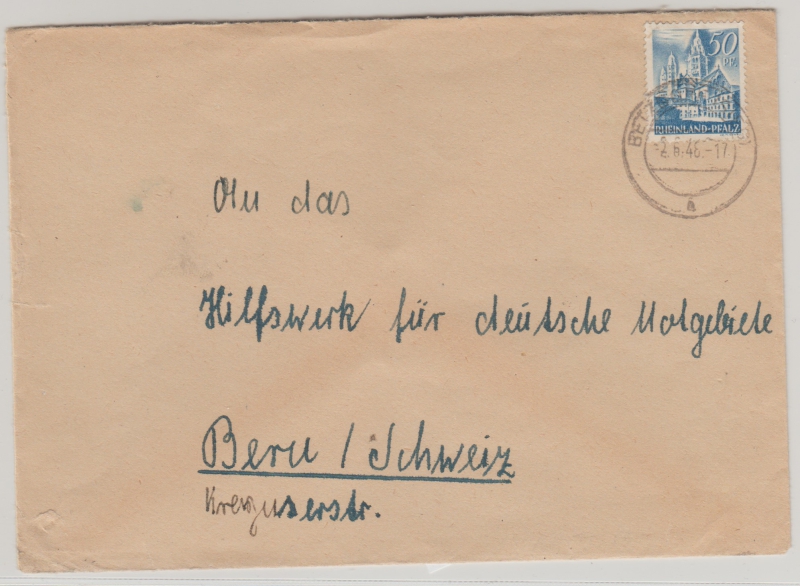 50
Pf.
RHEINLAND-PFALZ
48.-17
a
An das
Hilfswerk für deutsche Notgebiete
Bern / Schweiz